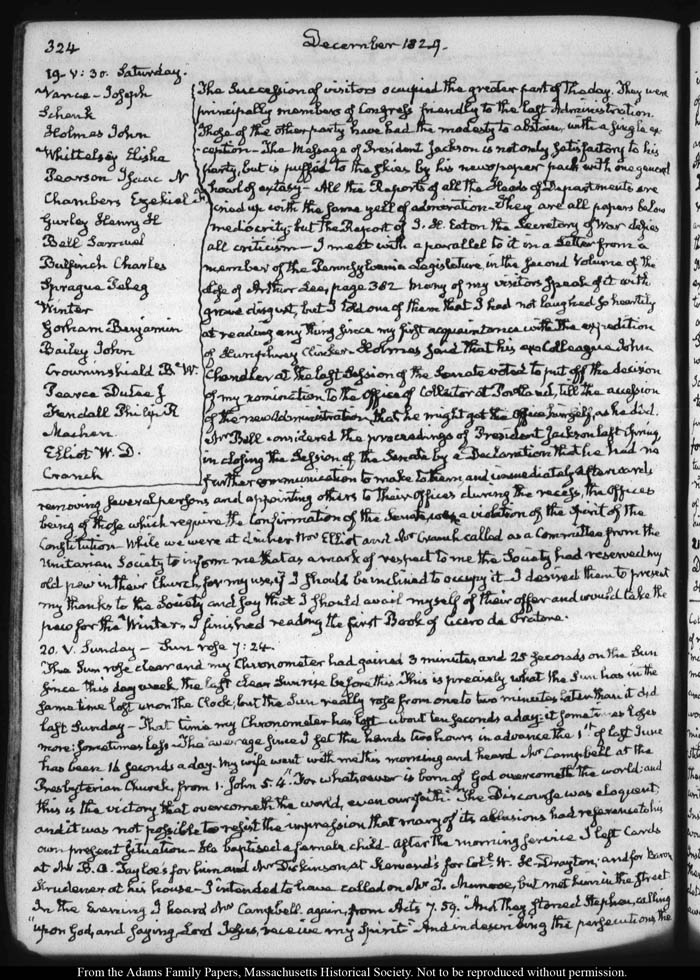 324
December 1829.
19. V: 30. Saturday.
Vance - Joseph
Schenk
Holmes John
Whittelsey Elisha
Pearson Isaac N
Chambers Ezekiel F
Gurley Henry H
Bell Samuel
Bulfinch Charles
Sprague Peleg
Winter
Gorham Benjamin
Bailey John
Crowninshield B. W.
Pearce Dutee J
Kendall Philip R
Machen
Elliot W. D.
Cranch
The Succession of visitors occupied the greater part of the day. They were
principally members of Congress friendly to the last Administration.
Those of the other party have had the modesty to abstain, with a single ex-
ception - The Message of President Jackson is not only satisfactory to his
party, but is puffed to the skies by his newspaper pack with one general
howl of extasy - All the Reports of all the Heads of Departments are
cried up with the same yell of admiration - They are all papers below
mediocrity, but the Report of J. H. Eaton the Secretary of War defies
all criticism - I meet with a parallel to it in a Letter from a
member of the Pennsylvania Legislature, in the second Volume of the
Life of Arthur Lee, page 382 Many of my visitors speak of it with
grave disgust, but I told one of them that I had not laughed so heartily
at reading any thing since my first acquaintance with the expedition
of Humphrey Clinker - Holmes said that his ex Colleague John
Chandler at the last Session of the Senate voted to put off the decision
of my nomination to the Office of Collector at Portland, till the accession
of the new Administration, that he might get the Office himself, as he did.
Mr Bell considered the proceedings of President Jackson last Spring,
in closing the Session of the Senate by a Declaration that he had no
further communication to make to them, and immediately afterwards,
removing several persons and appointing others to their Offices during the recess, the Offices
being of those which require the confirmation of the Senate, was a violation of the Spirit of the
Constitution - While we were at dinner Mr Elliot and Mr Cranch called as a Committee from the
Unitarian Society to inform me that as a mark of respect to me the Society had reserved my
old pew in their Church, for my use, if I should be inclined to occupy it. I desired them to present
my thanks to the Society and say that I should avail myself of their offer and would take the
pew for the Winter. I finished reading the first Book of Cicero de Oratore.
20. V. Sunday - Sun rose 7:24.
The Sun rose clear and my Chronometer had gained 3 minutes and 25 seconds on the Sun
since this day week the last clear Sunrise before this. This is precisely what the Sun has in the
same time lost upon the Clock; but the Sun really rose from one to two minutes later than it did
last Sunday - That time my Chronometer has lost about ten seconds a day: it sometimes loses
more: sometimes less - The average since I set the hands two hours in advance the 1st of last June
has been 16 seconds a day. My wife went with me this morning and heard Mr Campbell at the
Presbyterian Church, from 1. John 5. 4. "For whatsoever is born of God overcometh the world: and
this is the victory that overcometh the world, even our faith." The Discourse was eloquent,
and it was not possible to resist the impression that many of its allusions had reference to his
own present situation - He baptised a female child. After the morning service I left Cards
at Mr B. O. Tayloe's for him and Mr Dickinson, at Kenuard's for Col. W. H. Drayton; and for Baron
Krudener at his house - I intended to have called on Mr J. Munroe, but met him in the Street
In the Evening I heard Mr Campbell again, from Acts 7. 59. "And they stoned Stephen, calling
"upon God, and saying, Lord Jesus, receive my Spirit" - And in describing the persecutions, the
From the Adams Family Papers, Massachusetts Historical Society. Not to be reproduced without permission.